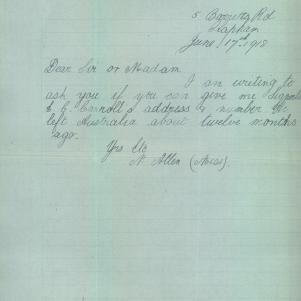 June 17th 1918
Dear Sir or Madam.
I am writing to
ask you if you can give me
address & number he
left Australia about twelve months
ago.
Yrs etc
N. Allen (Miss).